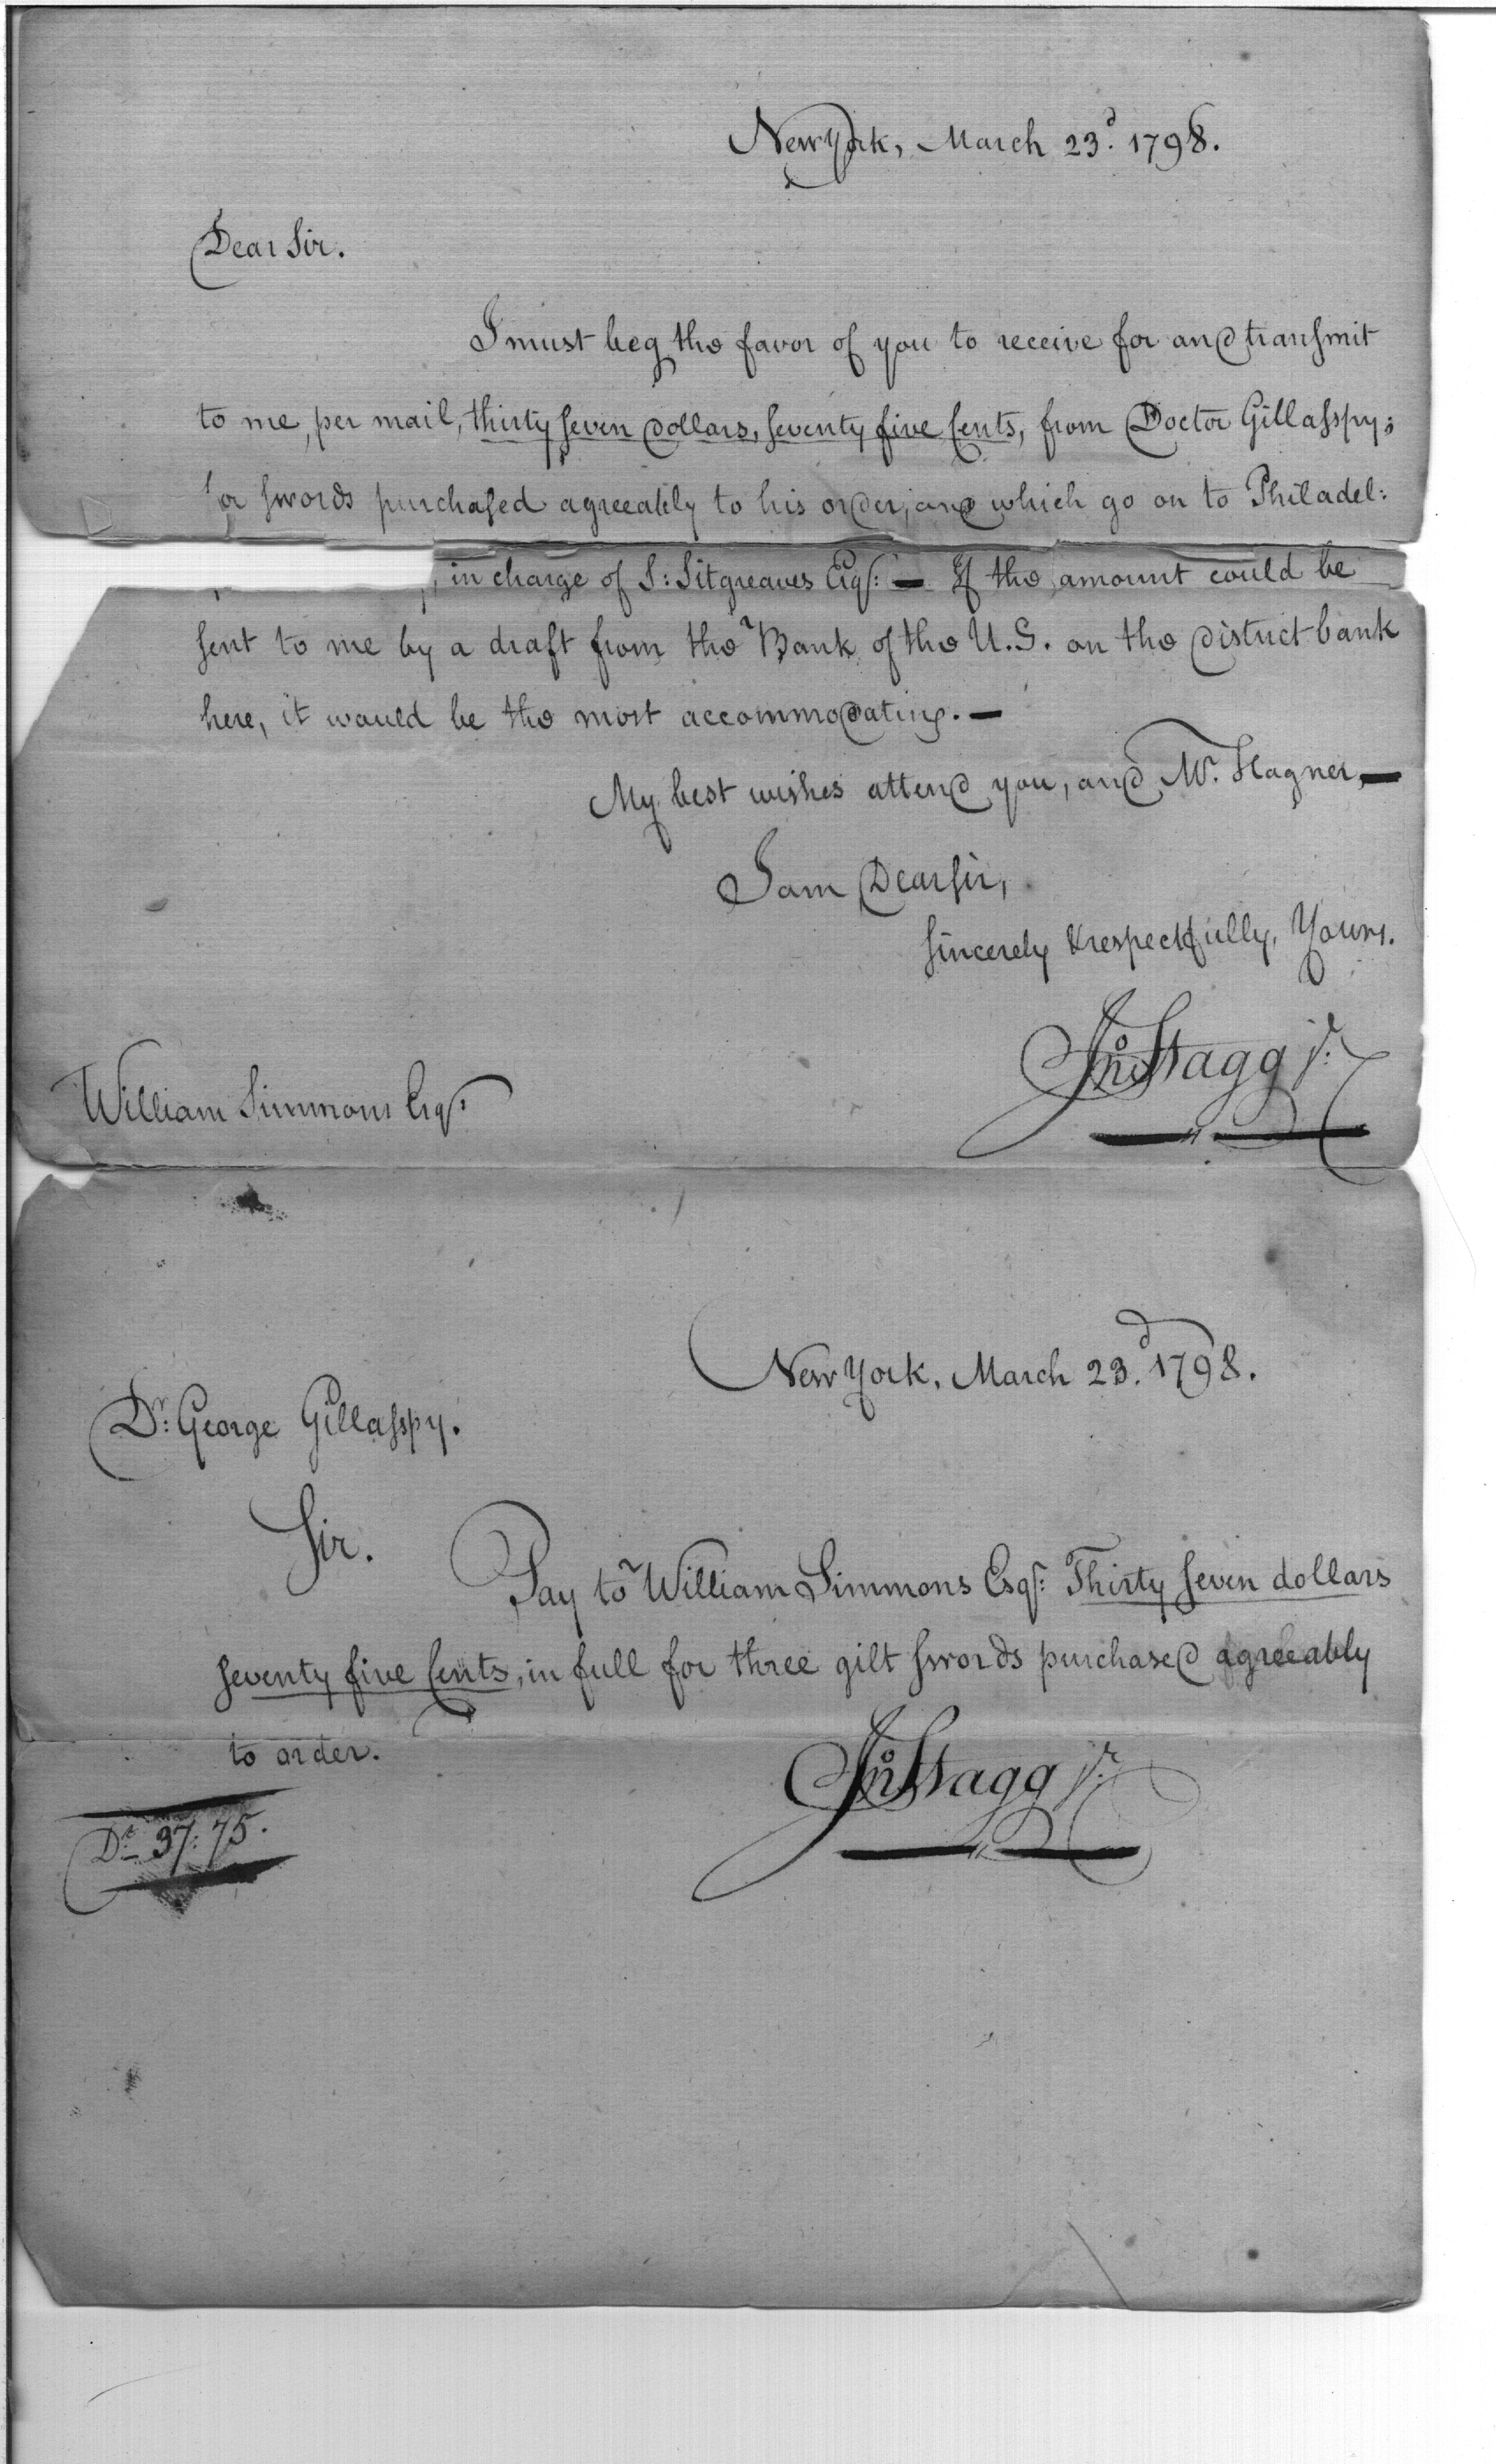 New York, March 23d. 1798.
Dear Sir.
I must beg the favor of you to receive for and transmit
to me, per mail, thirty seven dollars, seventy five Cents, from Doctor Gillasspy;
for swords purchased agreeably to his order, and which go on to Philadel:
in charge of S: Sitgreaves Esqr: — If the amount could be
sent to me by a draft from the Bank of the U.S. on the district bank
here, it would be the most accommodating. —
My best wishes attend you, and Mr. Hagner, —
I am Dear Sir,
Sincerely & respectfully, Yours.
Jno Stagg Jr:
William Simmons Esqr:
New York, March 23d. 1798.
Dr: George Gillasspy.
Sir.
Pay to William Simmons Esqr: Thirty seven dollars
seventy five Cents, in full for three gilt swords purchased agreeably
to order.
Jno Stagg Jr:
Ds 37:75.